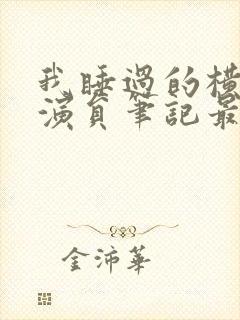 我睡過的橫
演員筆記最
金沛華